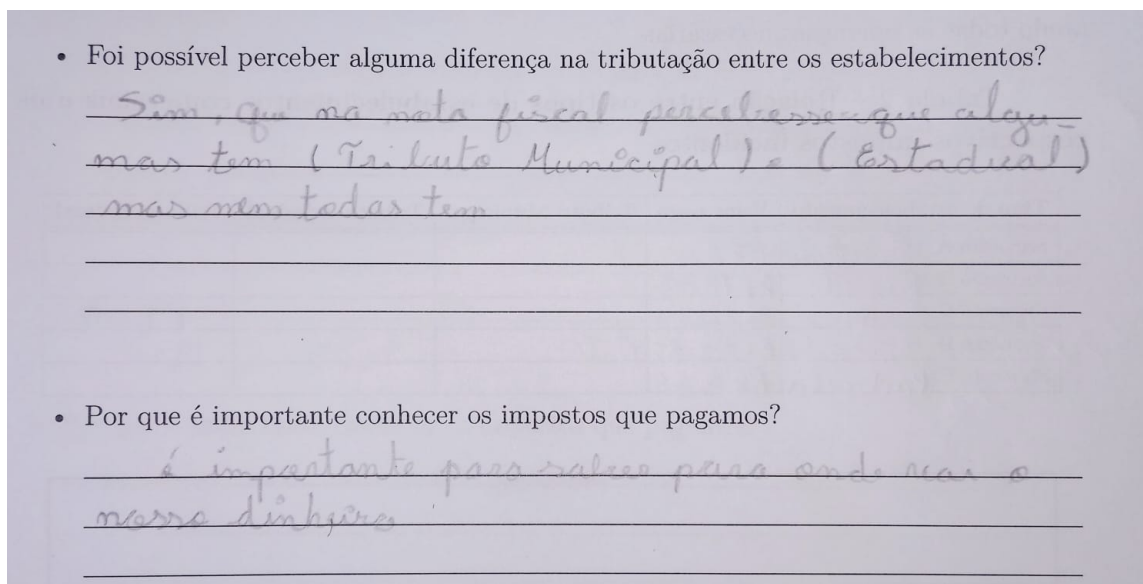 • Foi possível perceber alguma diferença na tributação entre os estabelecimentos?
Sim, que na nota fiscal percebesse que algu-
mas tem (Tributo Municipal) e (Estadual)
mas nem todas tem
• Por que é importante conhecer os impostos que pagamos?
é importante para saber para onde vai o
nosso dinheiro